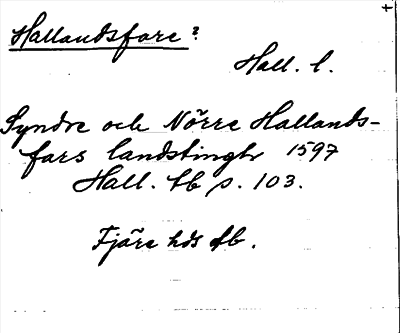 Hallandsfare?
Hall. l.
Syndre och Nörre Hallands-
fars landstingh 1597
Hall. tb s. 103.
Fjäre hds db.